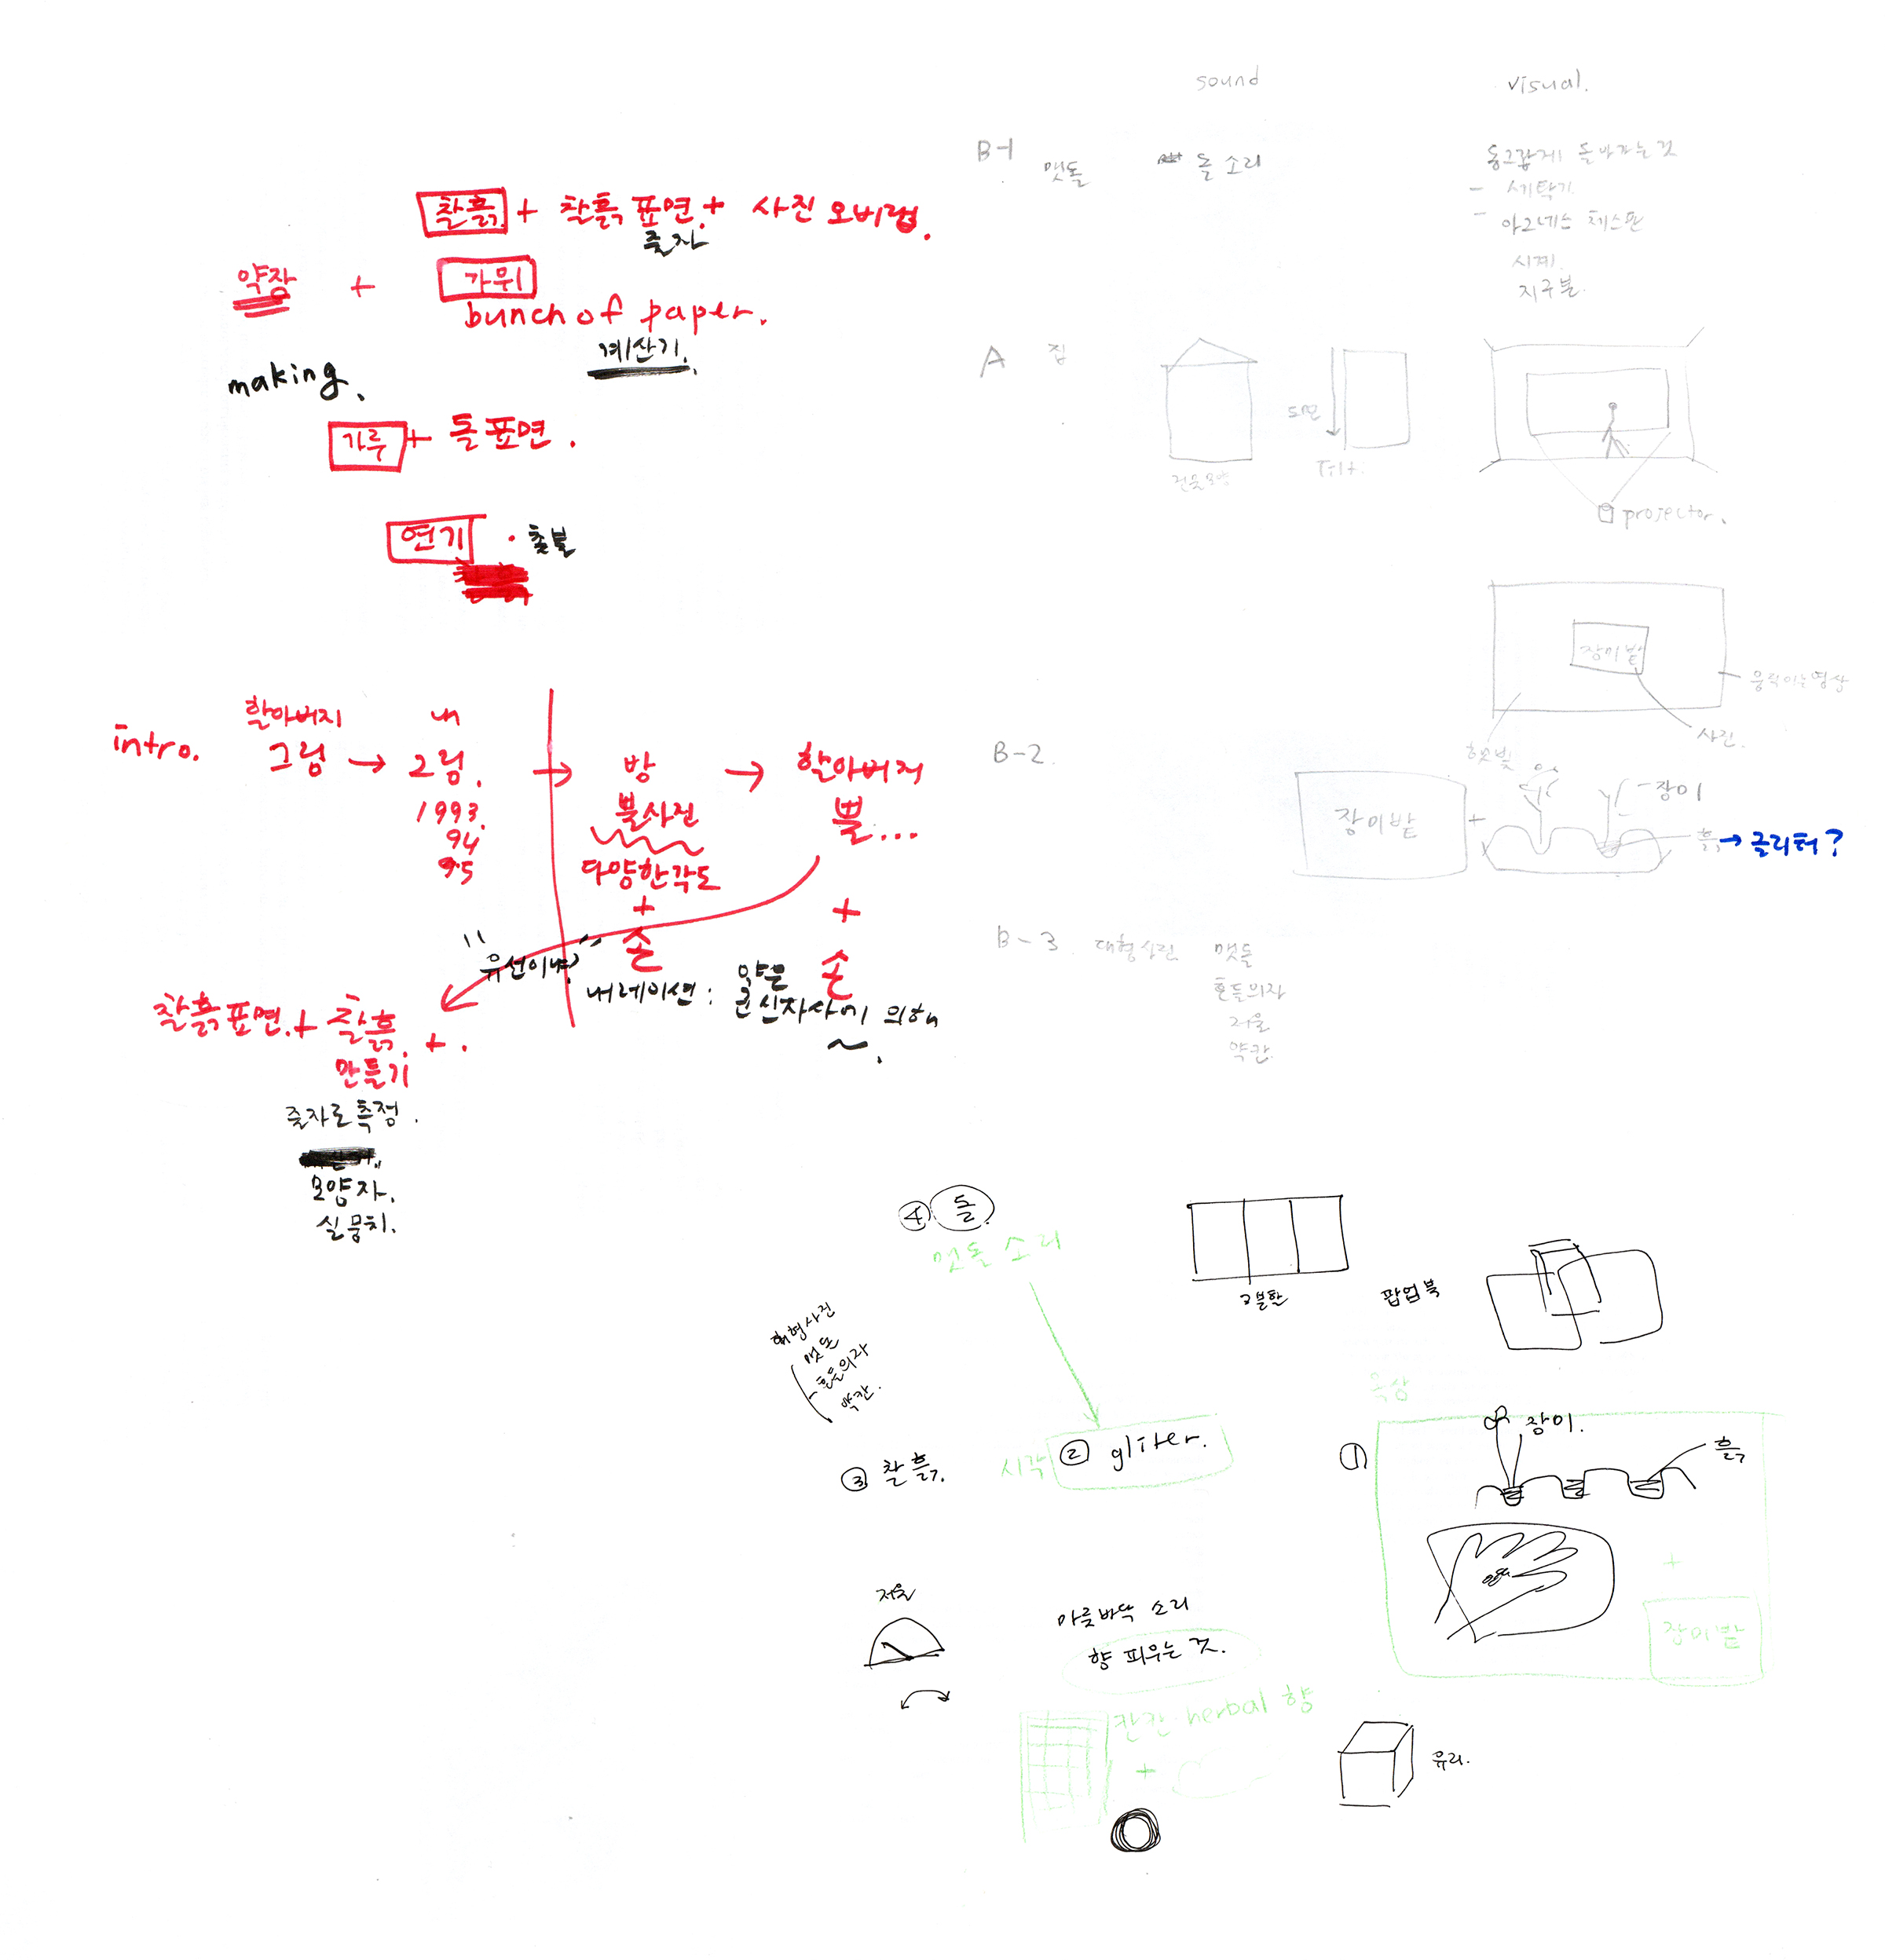 찰흙 + 찰흙 표면 + 사진 오버랩.
줄자
약장 + 가위
bunch of paper.
계산기.
making.
가루 + 돌 표면.
연기 · 촛불
intro.
할아버지
그림 → 내
그림.
1993.
94
95
→ 방
뿔사진
다양한각도
+
손
→ 할아버지
뿔...
+
손
"유선이냐?"
내레이션 : 약은
군신좌사에 의해
~.
찰흙표면. + 찰흙
만들기 + .
줄자로 측정.
모양자.
실뭉치.
sound
visual.
B-1 맷돌
돌 소리
동그랗게 돌아가는 것
- 세탁기
- 아그네스 체스판
시계.
지구본.
A 집
건물모양
도면
Tilt.
projector.
장미밭
움직이는영상
사진.
햇빛
B-2.
장미밭 +
장미
흙 → 글리터?
B-3. 대형사진
맷돌
흔들의자
저울
약칸
④ 돌
맷돌 소리
3분할
팝업북
대형사진
맷돌
흔들의자
약칸.
옥상
①
장미.
흙
+
장미밭
③ 찰흙.
시각 ② gliter.
저울
마룻바닥 소리
향 피우는 것.
칸칸 herbal 향
+
유리.